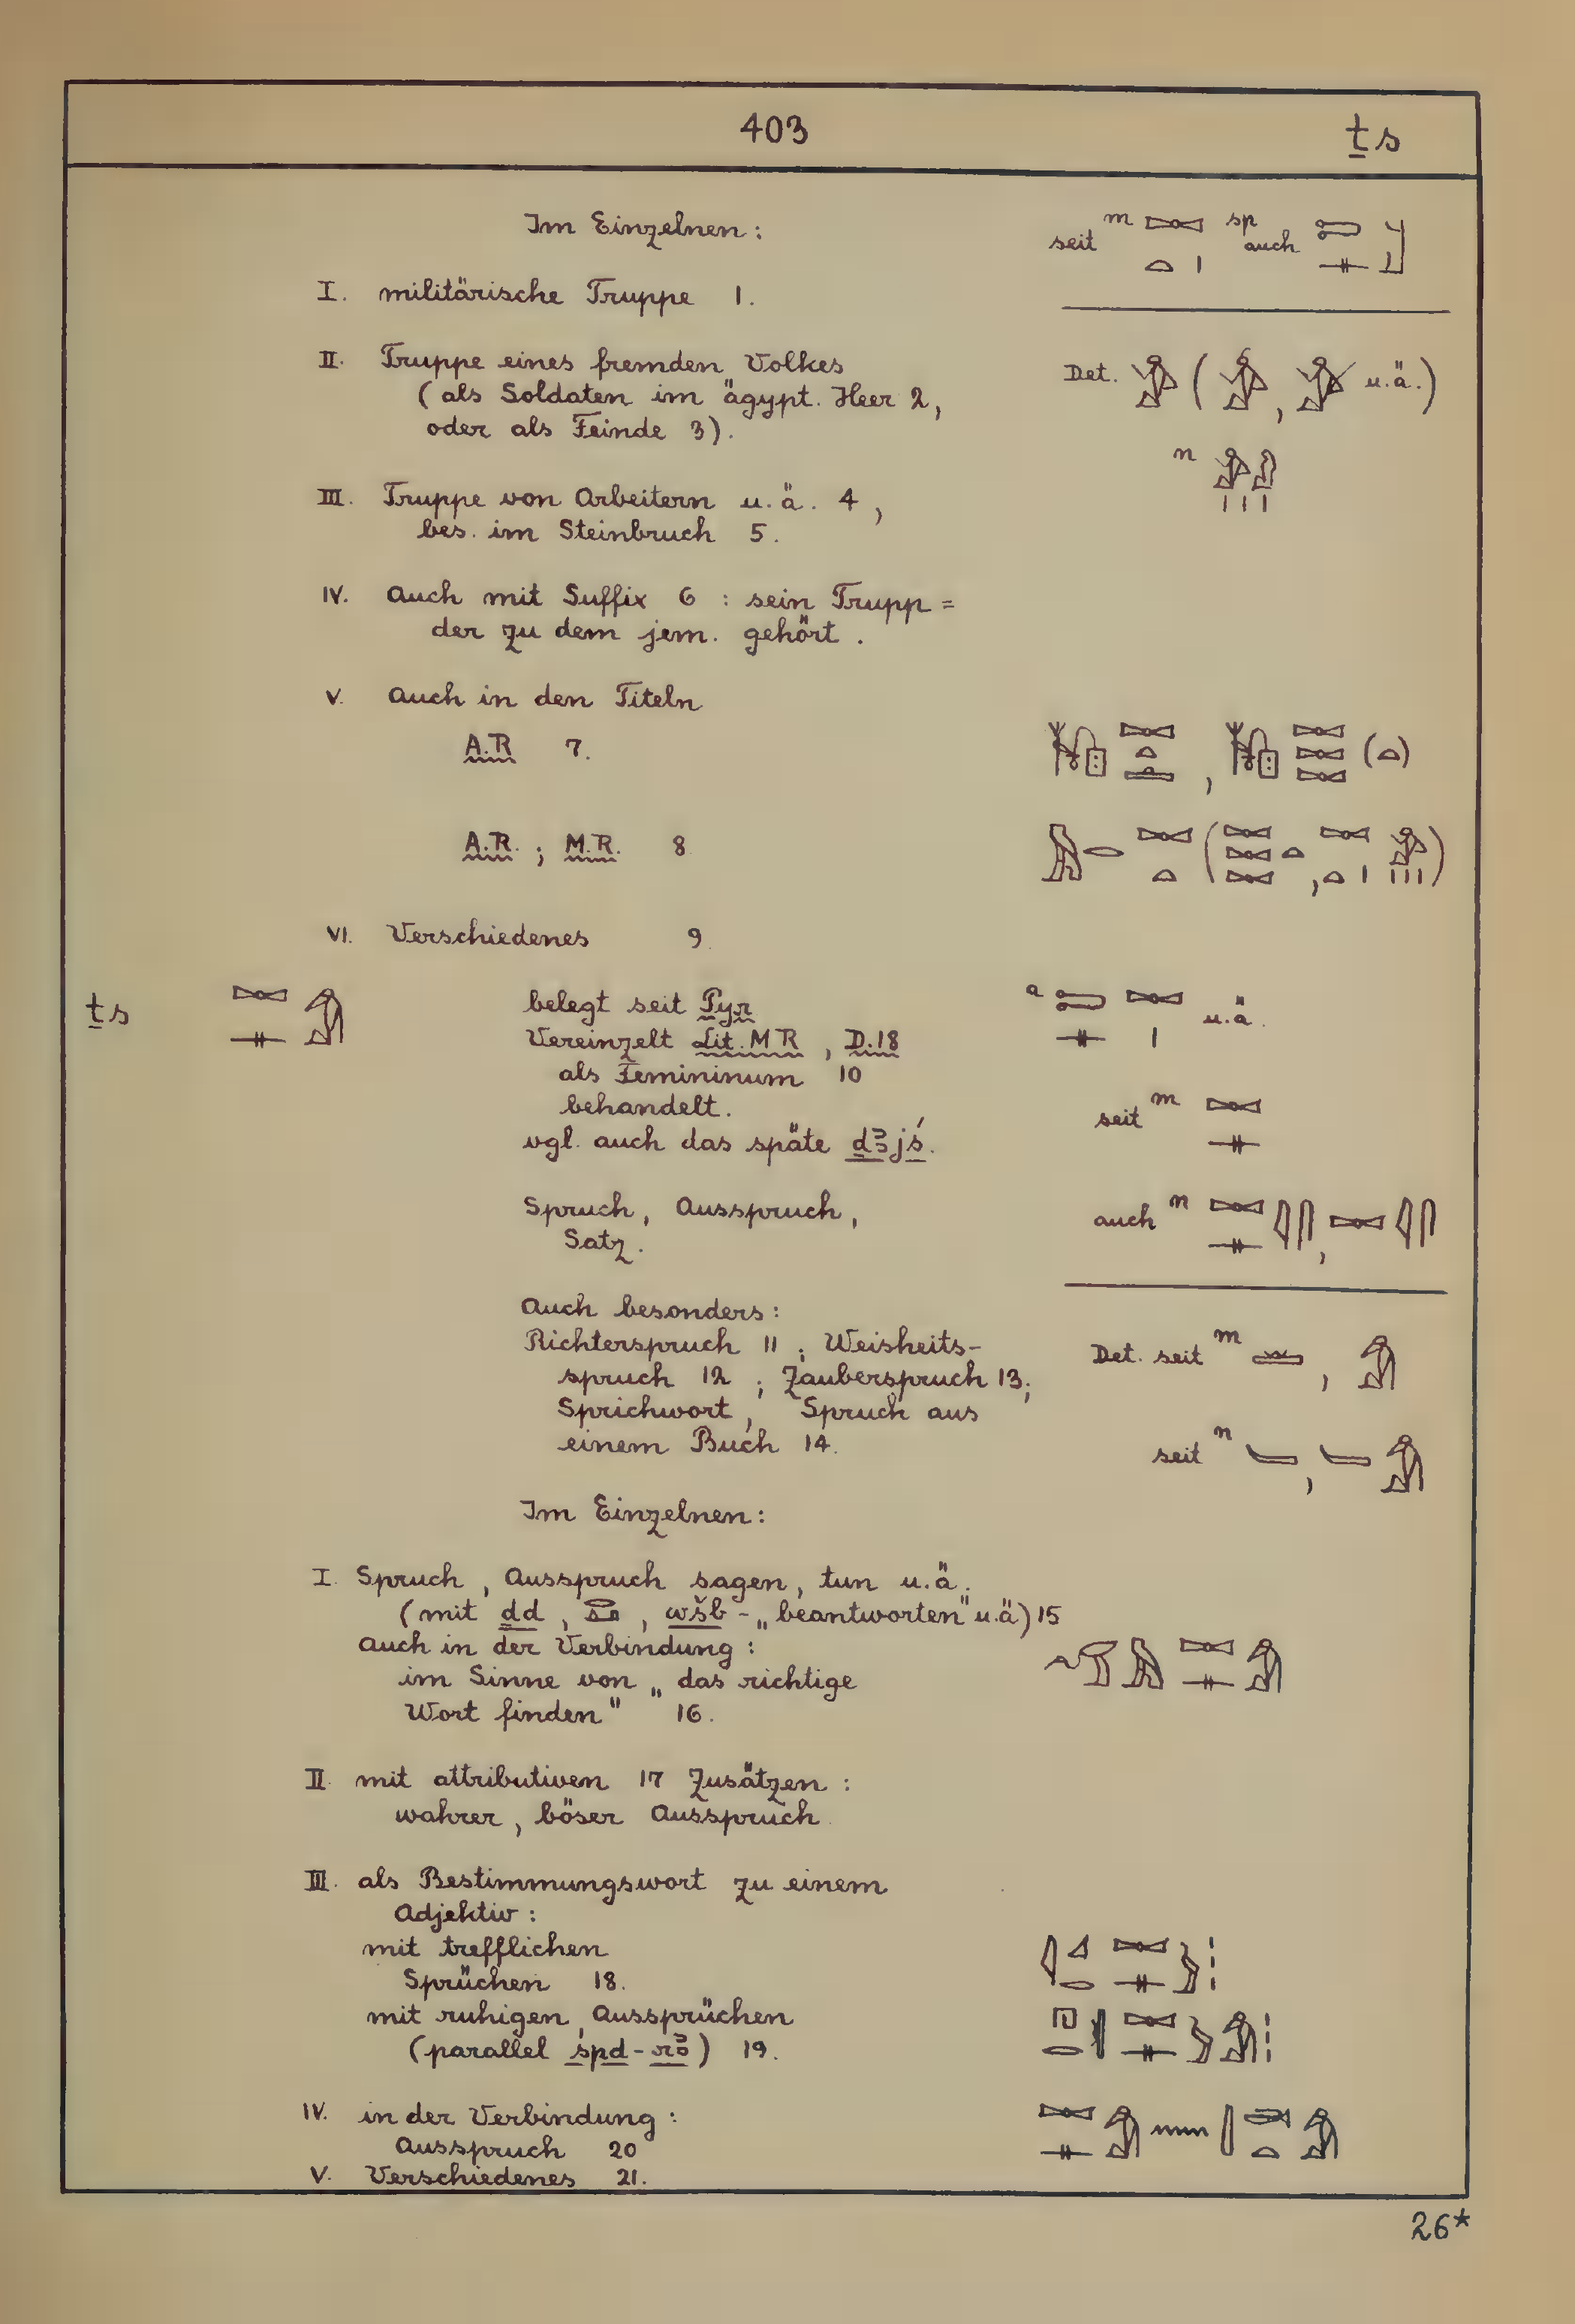 403 ṯs
Im Einzelnen:
seit m 𓋭 𓏏𓏤 sp auch 𓍿𓊃
I. militärische Truppe 1.
II. Truppe eines fremden Volkes
(als Soldaten im ägypt. Heer 2,
Det. 𓀎 ( , u.ä.)
oder als Feinde 3).
n
III. Truppe von Arbeitern u.ä. 4,
bes. im Steinbruch 5.
IV. Auch mit Suffix 6 : sein Trupp =
der zu dem jem. gehört.
V. Auch in den Titeln
A.R 7.
A.R. ; M.R. 8
VI. Verschiedenes 9.
ṯs 𓋭𓊃 belegt seit Pyr a 𓍿𓊃 𓋭𓏤 u.ä.
Vereinzelt Lit. MR, D.18
als Femininum 10
behandelt.
seit m 𓋭𓊃
vgl. auch das späte ḏꜣjś.
Spruch, Ausspruch,
auch n 𓋭𓊃𓇋𓋴, 𓋭𓇋𓋴
Satz.
Auch besonders:
Richterspruch 11 ; Weisheits-
Det. seit m , 𓀁
spruch 12 ; Zauberspruch 13;
Sprichwort, Spruch aus
einem Buch 14.
seit n ,
Im Einzelnen:
I. Spruch, Ausspruch sagen, tun u.ä.
(mit ḏd, , wšb - „beantworten" u.ä) 15
Auch in der Verbindung:
im Sinne von „das richtige
Wort finden" 16.
II. mit attributiven 17 Zusätzen :
wahrer, böser Ausspruch.
III. als Bestimmungswort zu einem
Adjektiv :
mit trefflichen
Sprüchen 18. 𓇋𓈎𓂋 𓋭𓊃
mit ruhigen Aussprüchen
(parallel śpd-rꜣ) 19.
IV. in der Verbindung :
Ausspruch 20
V. Verschiedenes 21.
26*